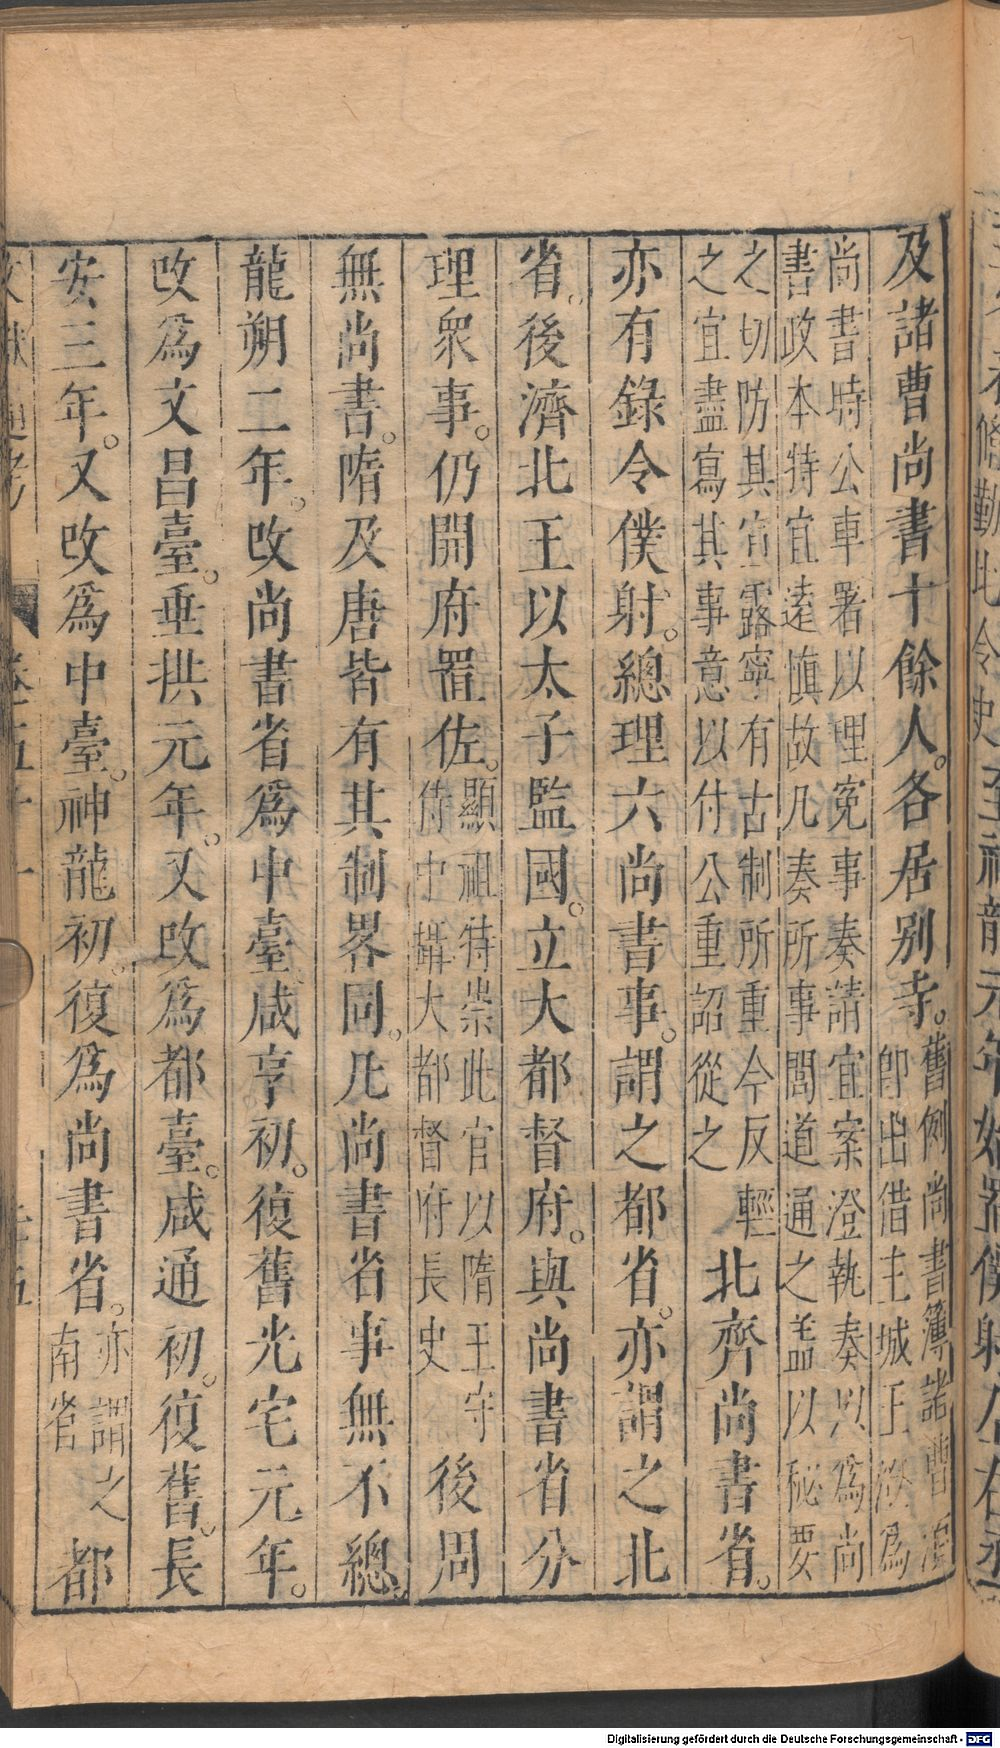 及諸曹尚書十餘人。各居别寺。舊例尚書簿諸曹
卽出借主城王澄爲
尚書時公車署以理寃事奏請宜案澄執奏以爲尚
書政本特宜遠愼故凡奏所事閤道通之盖以秘要
之切防其宣露寧有古制所重今反輕
之宜盡寫其事意以付公重詔從之
北齊尚書省。
亦有錄令僕射。總理六尚書事。謂之都省。亦謂之北
省。後濟北王以太子監國。立大都督府。與尚書省分
理衆事。仍開府置佐。顯祖特崇此官以隋王守
侍中攝大都督府長史
後周
無尚書。隋及唐皆有其制畧同。凡尚書省事無不總。
龍朔二年。改尚書省爲中臺。咸亨初。復舊光宅元年。
改爲文昌臺。垂拱元年。又改爲都臺。咸通初。復舊。長
安三年。又改爲中臺。神龍初。復爲尚書省。亦謂之
南省
都
Digitalisierung gefördert durch die Deutsche Forschungsgemeinschaft - DFG